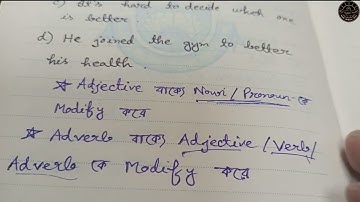 c) It's hard to decide which one
is better
d) He joined the gym to better
his health.
☆ Adjective বাক্যে Noun/Pronoun-কে
Modify করে
☆ Adverb বাক্যে Adjective/Verb/
Adverb কে Modify করে